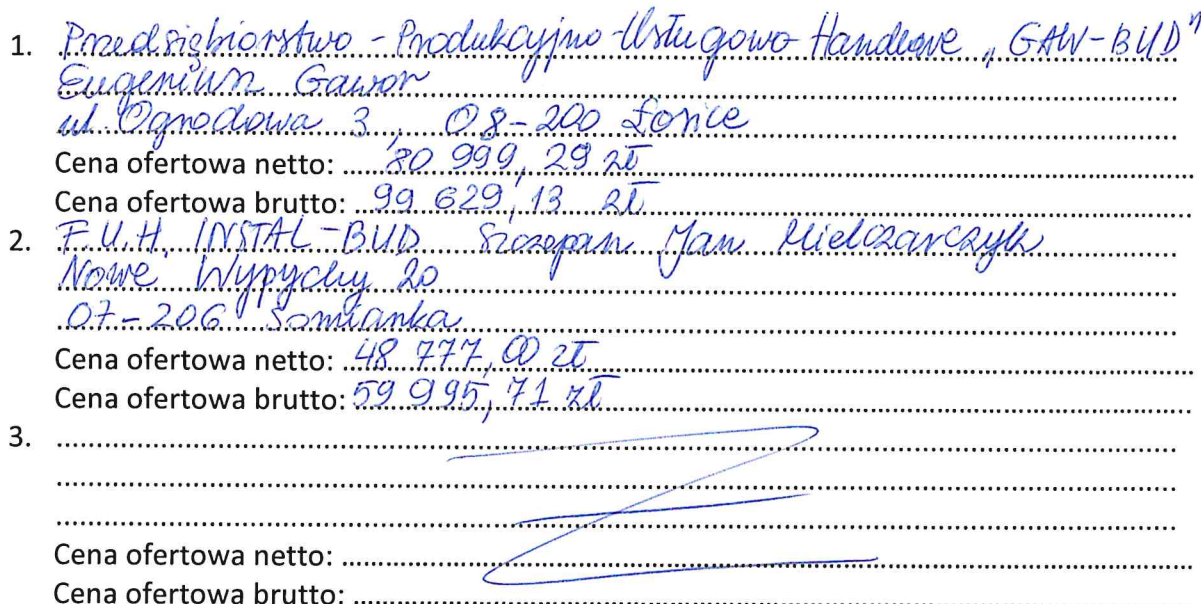 1. Przedsiębiorstwo - Produkcyjno - Usługowo Handlowe „GAW-BUD”
Eugeniusz Gawor
ul. Ogrodowa 3, 08-200 Łosice
Cena ofertowa netto: 80 999,29 zł
Cena ofertowa brutto: 99 629,13 zł
2. F.U.H. INSTAL-BUD Szczepan Jan Mielczarczyk
Nowe Wypychy 20
07-206 Somianka
Cena ofertowa netto: 48 777,00 zł
Cena ofertowa brutto: 59 995,71 zł
3.
Cena ofertowa netto:
Cena ofertowa brutto: